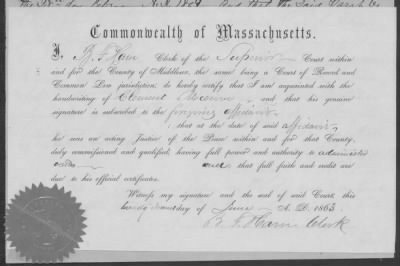 Commonwealth of Massachusetts.
I, B. F. Ham Clerk of the Superior Court within
and for the County of Middlesex, the same being a Court of Record and
Common Law jurisdiction, do hereby certify that I am acquainted with the
handwriting of and that his genuine
signature is subscribed to the foregoing affidavit
that at the date of said affidavit
he was an acting Justice of the Peace within and for that County,
duly commissioned and qualified, having full power and authority to administer
oaths and that full faith and credit are
due to his official certificates.
Witness my signature and the seal of said Court, this
day of June A. D. 1863.
B. F. Ham Clerk